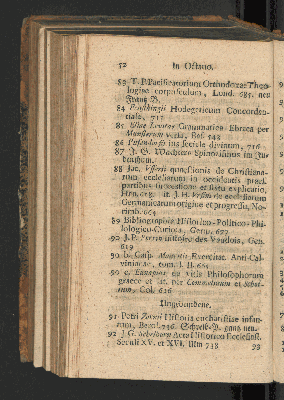 52 In Octavo.
83 T. P. Pacificatorium Orthodoxae Theo-
logiae corpusculum, Lond. 685. neu
Franz B.
84 Hodegeticum Concorden-
tiale, 717
85 Eliae Levitae Grammatica Ebraea per
Munsterum versa, Bas. 543
86 Pufendorf ius feciale divinum, 716
87 J. G. Wachters Spinozismus im Ju-
denthum.
88 Jac. Usserii quaestionis de Christiana-
rum ecclesiarum in occidentis praes.
partibus successione et statu explicatio,
Han. 658. it. J. H. Ursini de ecclesiarum
Germanicarum origine et progressu, No-
rimb. 664
89 Bibliographia Historico-Politico-Phi-
lologico-Curiosa, Gen. 677
90 J. P. Perrin histoire des Vaudois, Gen.
619
90 b. Casp. Exercitat. Anti-Cal-
vinianae, tom. I. B. 605
90 c. Eunapius de vitis Philosophorum
graece et lat. per Commelinum et
Col. 616
Ungebundene.
91 Petri Zornii Historia eucharistiae infan-
tum, Berol. 736. Schreib-P. ganz neu.
92 J. G. Schelhorn Acta Historico Ecclesiast.
Seculi XV. et XVI. Ulm 738
93